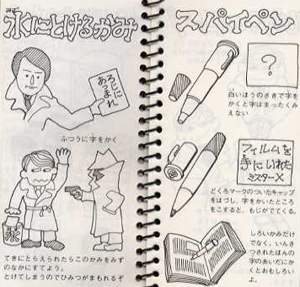 水にとけるかみ
みず
ろじに
あつまれ
ふつうに字をかく
てきにとらえられたらこのかみをみず
のなかにすてよう。
とけてしまうのでひみつがまもれるぞ
スパイペン
?
白いほうのさきで字を
かくと字はまったくみ
えない
フィルムを
手にいれた
ミスターX
どくろマークのついたキャップ
をはずし、字をかいたところ
をこすると、もじがでてくる。
しろいかみだけ
でなく、いんさ
つされたほんの
字のあいだにか
くとおもしろい
よ。